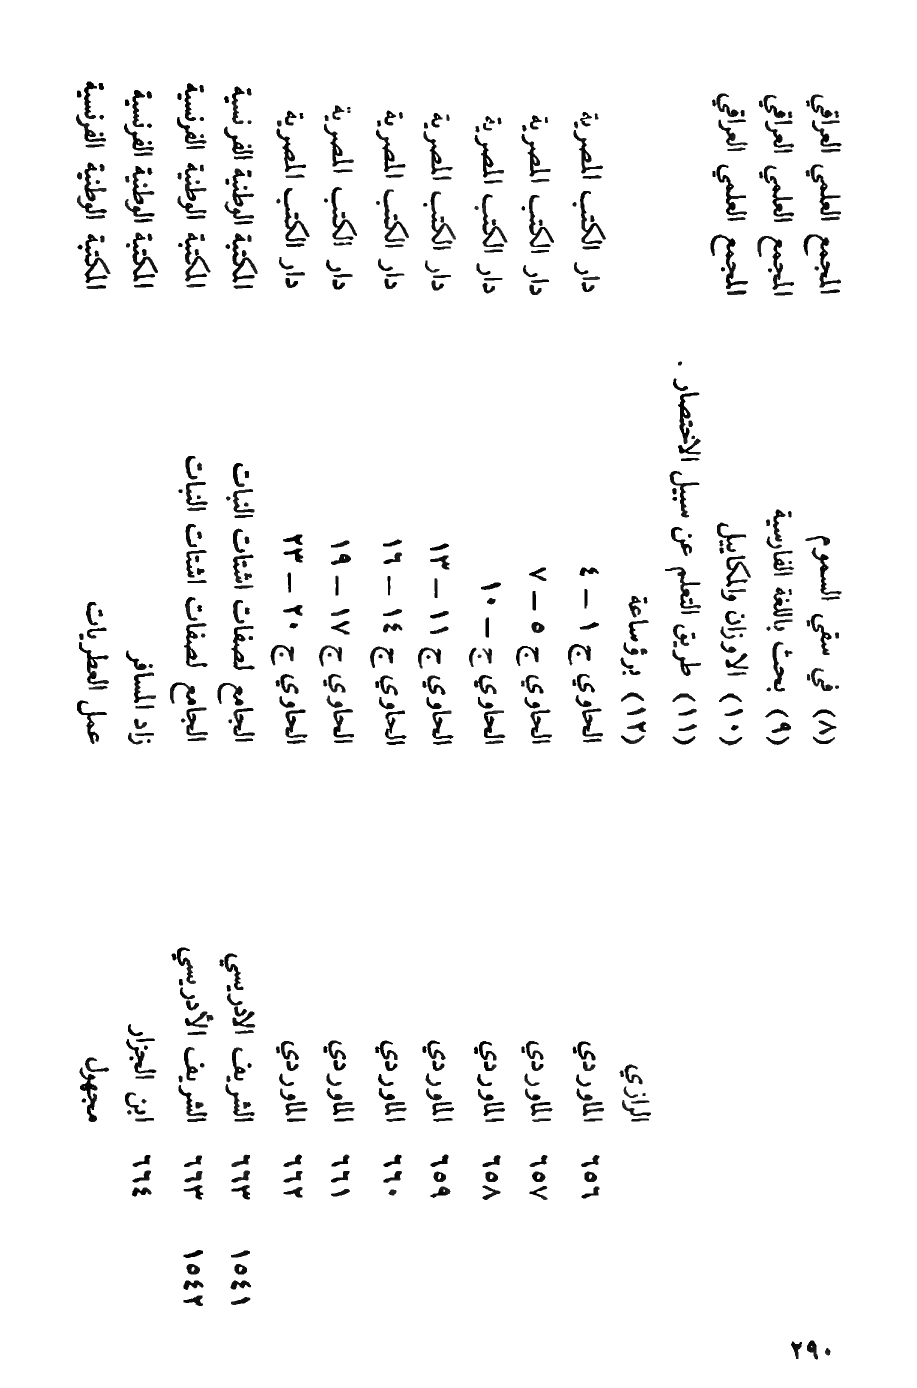 (٨) في سقي السموم المجمع العلمي العراقي
(٩) بحث باللغة الفارسية المجمع العلمي العراقي
(١٠) الاوزان والمكاييل المجمع العلمي العراقي
(١١) طريق التعلم عن سبيل الاختصار .
الرازي (١٢) برؤساعة
٦٥٦ الماوردي الحاوي ج ١ – ٤ دار الكتب المصرية
٦٥٧ الماوردي الحاوي ج ٥ – ٧ دار الكتب المصرية
٦٥٨ الماوردي الحاوي ج – ١٠ دار الكتب المصرية
٦٥٩ الماوردي الحاوي ج ١١ – ١٣ دار الكتب المصرية
٦٦٠ الماوردي الحاوي ج ١٤ – ١٦ دار الكتب المصرية
٦٦١ الماوردي الحاوي ج ١٧ – ١٩ دار الكتب المصرية
٦٦٢ الماوردي الحاوي ج ٢٠ – ٢٣ دار الكتب المصرية
١٥٤١ ٦٦٣ الشريف الادريسي الجامع لصفات اشتات النبات المكتبة الوطنية الفرنسية
١٥٤٢ ٦٦٣ الشريف الأدريسي الجامع لصفات اشتات النبات المكتبة الوطنية الفرنسية
٦٦٤ ابن الجزار زاد المسافر المكتبة الوطنية الفرنسية
مجهول عمل العطريات المكتبة الوطنية الفرنسية
٢٩٠